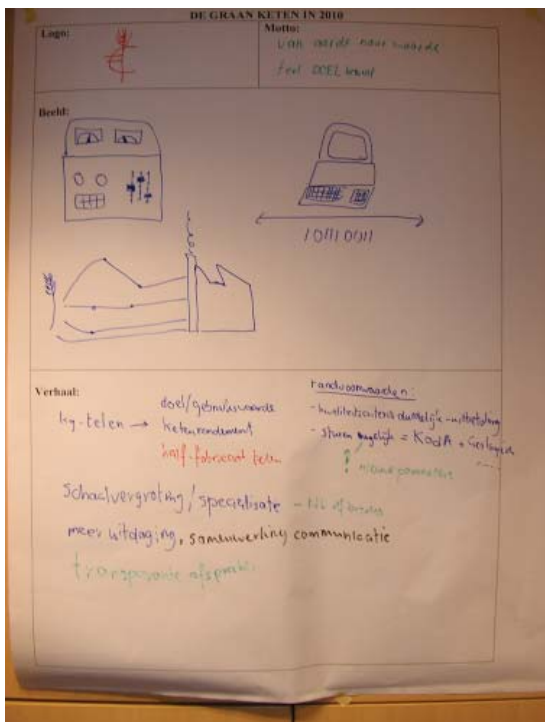 DE GRAAN KETEN IN 2010
Logo:
Motto:
van aarde naar waarde
teel DOEL
Beeld:
10110011
Verhaal:
kg-telen → doel/gebruikswaarde
ketenrendement
half-fabricaat telen
randvoorwaarden:
- kwaliteitcriteria duidelijk - uitbetaling
- sturen mogelijk = KodA +
nieuwe parameters
schaalvergroting/specialisatie -
meer uitdaging, samenwerking communicatie
transparante afspraken